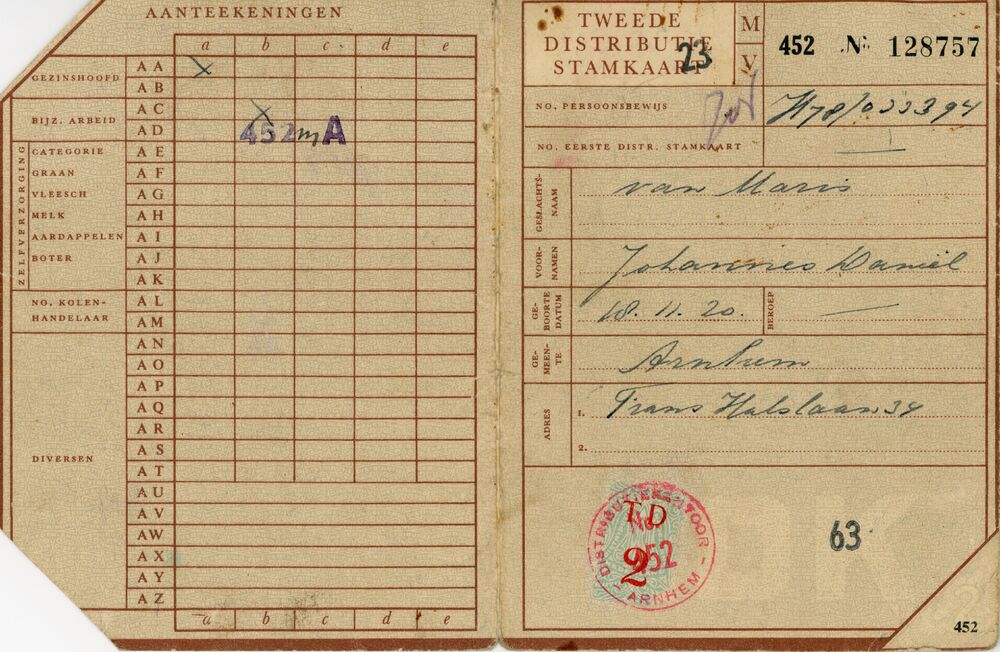 AANTEEKENINGEN
a b c d e
GEZINSHOOFD
A A
A B
BIJZ. ARBEID
A C
A D
452 m A
ZELFVERZORGING
CATEGORIE
GRAAN
VLEESCH
MELK
AARDAPPELEN
BOTER
A E
A F
A G
A H
A I
A J
A K
NO. KOLEN-
HANDELAAR
A L
A M
DIVERSEN
A N
A O
A P
A Q
A R
A S
A T
A U
A V
A W
A X
A Y
A Z
a b c d e
TWEEDE
DISTRIBUTIE
STAMKAART
23
M
V
452 No 128757
NO. PERSOONSBEWIJS H78/022394
NO. EERSTE DISTR. STAMKAART
GESLACHTS-
NAAM
van Maris
VOOR-
NAMEN
Johannes Daniël
GE-
BOORTE
DATUM
18.11.20.
BEROEP
GE-
MEEN-
TE
Arnhem
ADRES
1. Frans Halslaan 34
2.
DISTRIBUTIEKANTOOR
TD
No.
2
452
ARNHEM
63
452